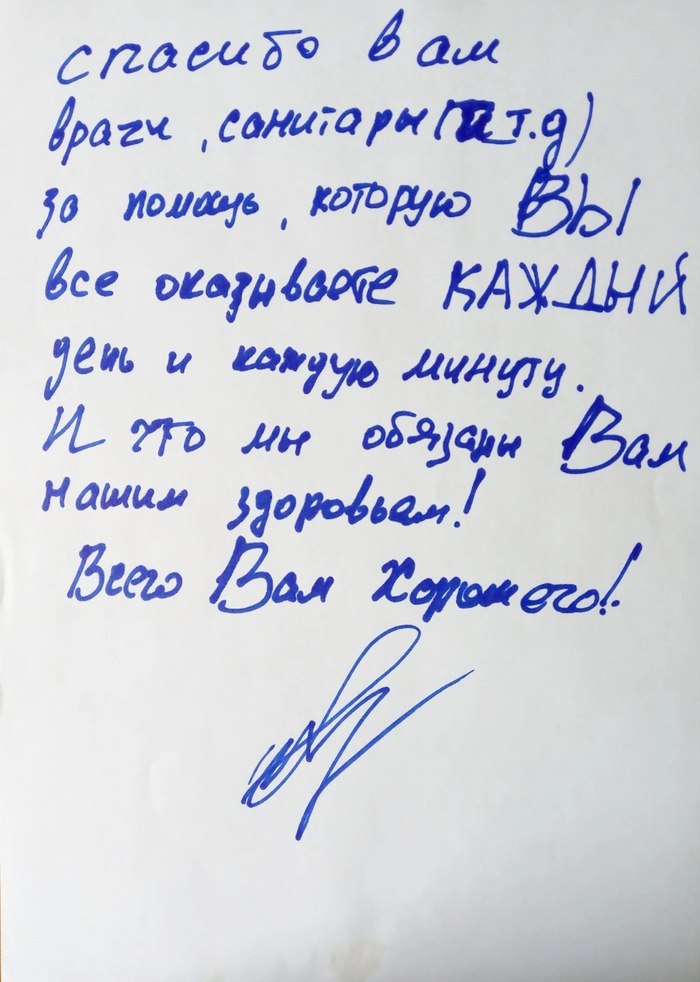 спасибо вам
врачи, санитары (и т.д)
за помощь, которую ВЫ
все оказываете КАЖДЫЙ
день и каждую минуту.
И что мы обязаны Вам
нашим здоровьем!
Всего Вам Хорошего!